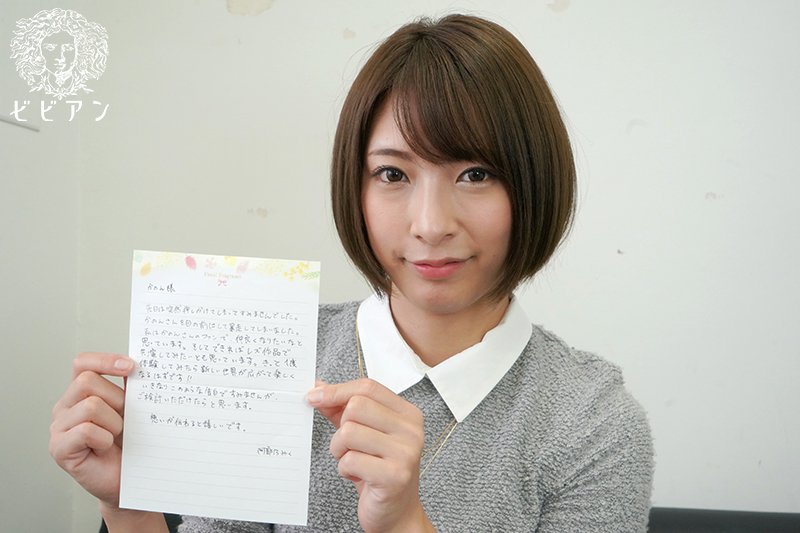 ビビアン
かのん様
先日は突然押しかけてしまってすみませんでした。
かのんさんを目の前にして暴走してしまいました。
私はかのんさんのファンで 仲良くなりたいなと
思っています。そしてできればレズ作品で
共演してみたいとも思っています。きっと1度
体験してみたら新しい世界が広がって楽しく
なるはずです!!
いきなりこのような告白ですみませんが、
ご検討いただけたらと思います。
想いが伝わると嬉しいです。
阿部乃みく